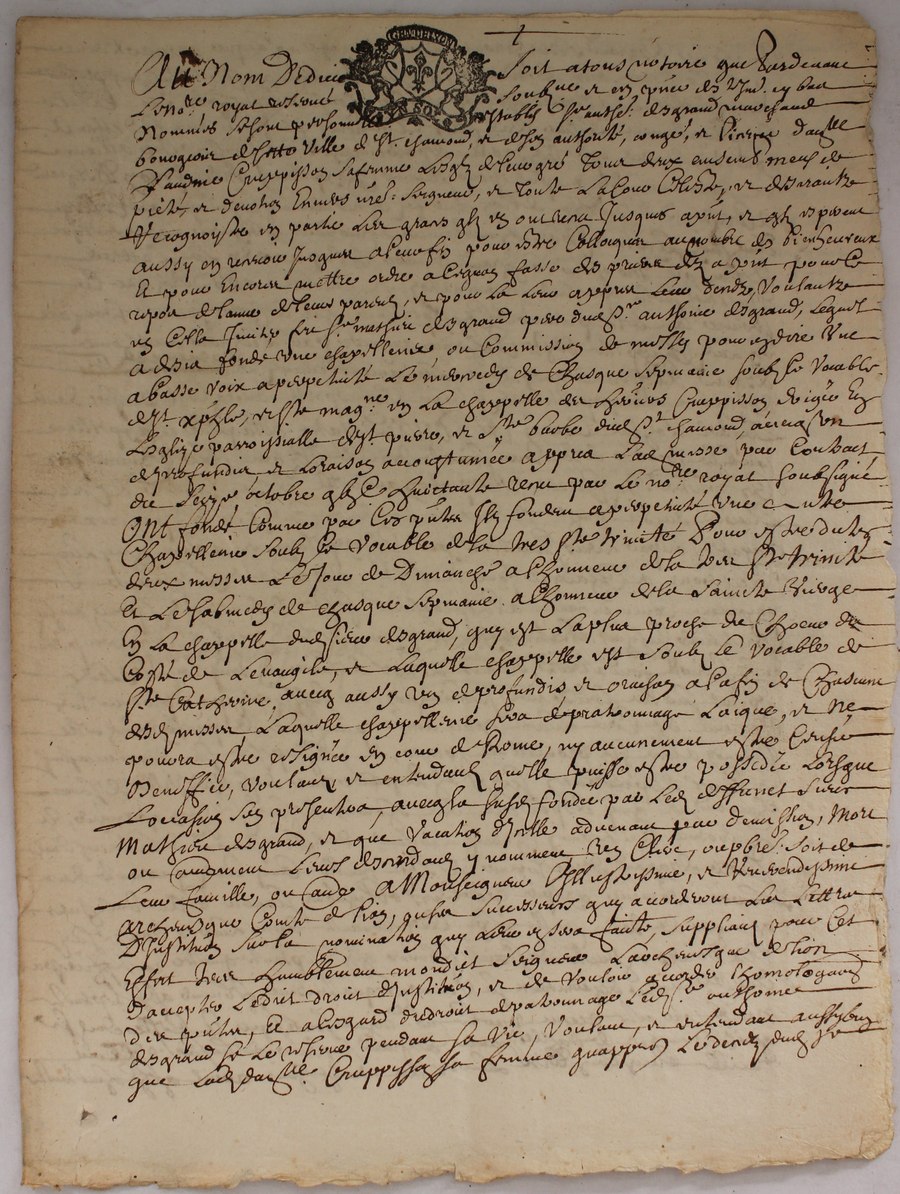 GEN DE LYON
Au Nom De dieu soit atous notoire que Pardevant
Le no.re royal reservé soubz.ne et en p.nce des tesm. cy bas
Nommés se sont personn establis s.r anth.e desgrand marchand
bourgeois de cette ville de S.t chamond, et de son authorité, congé, et licence dam.lle
Crappisson sa femme Lesq. de leur gré Tous deux ensemb meus de
pieté et devotion Envers n.re Seigneur, et Toute La Cour Celeste, et desirants
Recognoistre en partie Les graces q. en ont receu Jusques ap.nt, et q. esperent
aussy en recevoir Jusques a Leur fin pour estre Colloqués au nombre des bienheureux
Et pour Encores mettre ordre a ce quon fasse des prieres dez a p.nt pour Le
repos de lame de leurs parents, et pour La Leur appres Leur decedz, voulants
en cella Jmiter feu s.r mathieu desgrand pere dud s.r anthoine desgrand, Lequel
a desia fondé une chappellenie, ou Commission de messes pour en dire Une
a basse voix a perpetuité Le mercredy de Chasque sepmaine soubz Le vocable
de S.t xp.le, et s.te mag.ne en La chappelle des heoirs Crappisson erigée En
Leglize parroissialle de S.t pierre, et S.te barbe dud S.t chamond, avec un
de profundis et Loraison accoustumée appres Lad messe par Contract
du seize octobre huictante receu par Le no.re royal soubsigné
Ont fondé Comme par Ces p.ntes Ilz fondent a perpetuité une autre
Chappellenie soubz Le vocable de la tres S.te trinité Pour estre dittes
deux messes Le Jour de Dimanche a lhonneur de la tres S.te trinité
Et Le sabmedy de chasque sepmaine a lhonneur de la saincte vierge
En La chappelle dud sieur desgrand, quy est La plus proche du Choeur du
Costé de Levangile, et Laquelle chappelle est soubz le vocable de
S.te Catherine, avecq aussy un de profundis et oraison a la fin de Chascune
desd messes Laquelle chappellenie sera de patronnage Laique, et ne
pourra estre resignée en cour de Rome, ny aucunement estre Censée
Beneffice, voulants et entendants quelle puisse estre possedée Lorsque
Loccasion sen presentera, avecq La susd fondée par Led deffunct sieur
Mathieu desgrand, et que vacation dycelle advenant par demission, mort
ou autrement Leurs descendants y nomment un Clerc, ou pbre soit de
Leur famille, ou autre A Monseigneur Illustrissime, et Reverendissime
archevesque Comte de Lion, ou ses successeurs quy accorderont Les Lettres
Djnstitution sur La nomination quy Leur en sera faite, suppliants pour Cet
Effect tres humblement mondict Seigneur Larchevesque de Lion
daccepter Ledict droit djnstitution, et de vouloir accorder Lhomologation
des p.ntes, Et a lesgard du droit de patronnage Led s.r anthoine
desgrand se Le reserve pendant sa vie, voulant, et entendant aussy
que Lad dam.lle Crappisson sa femme quappres Le decedz dud s.r